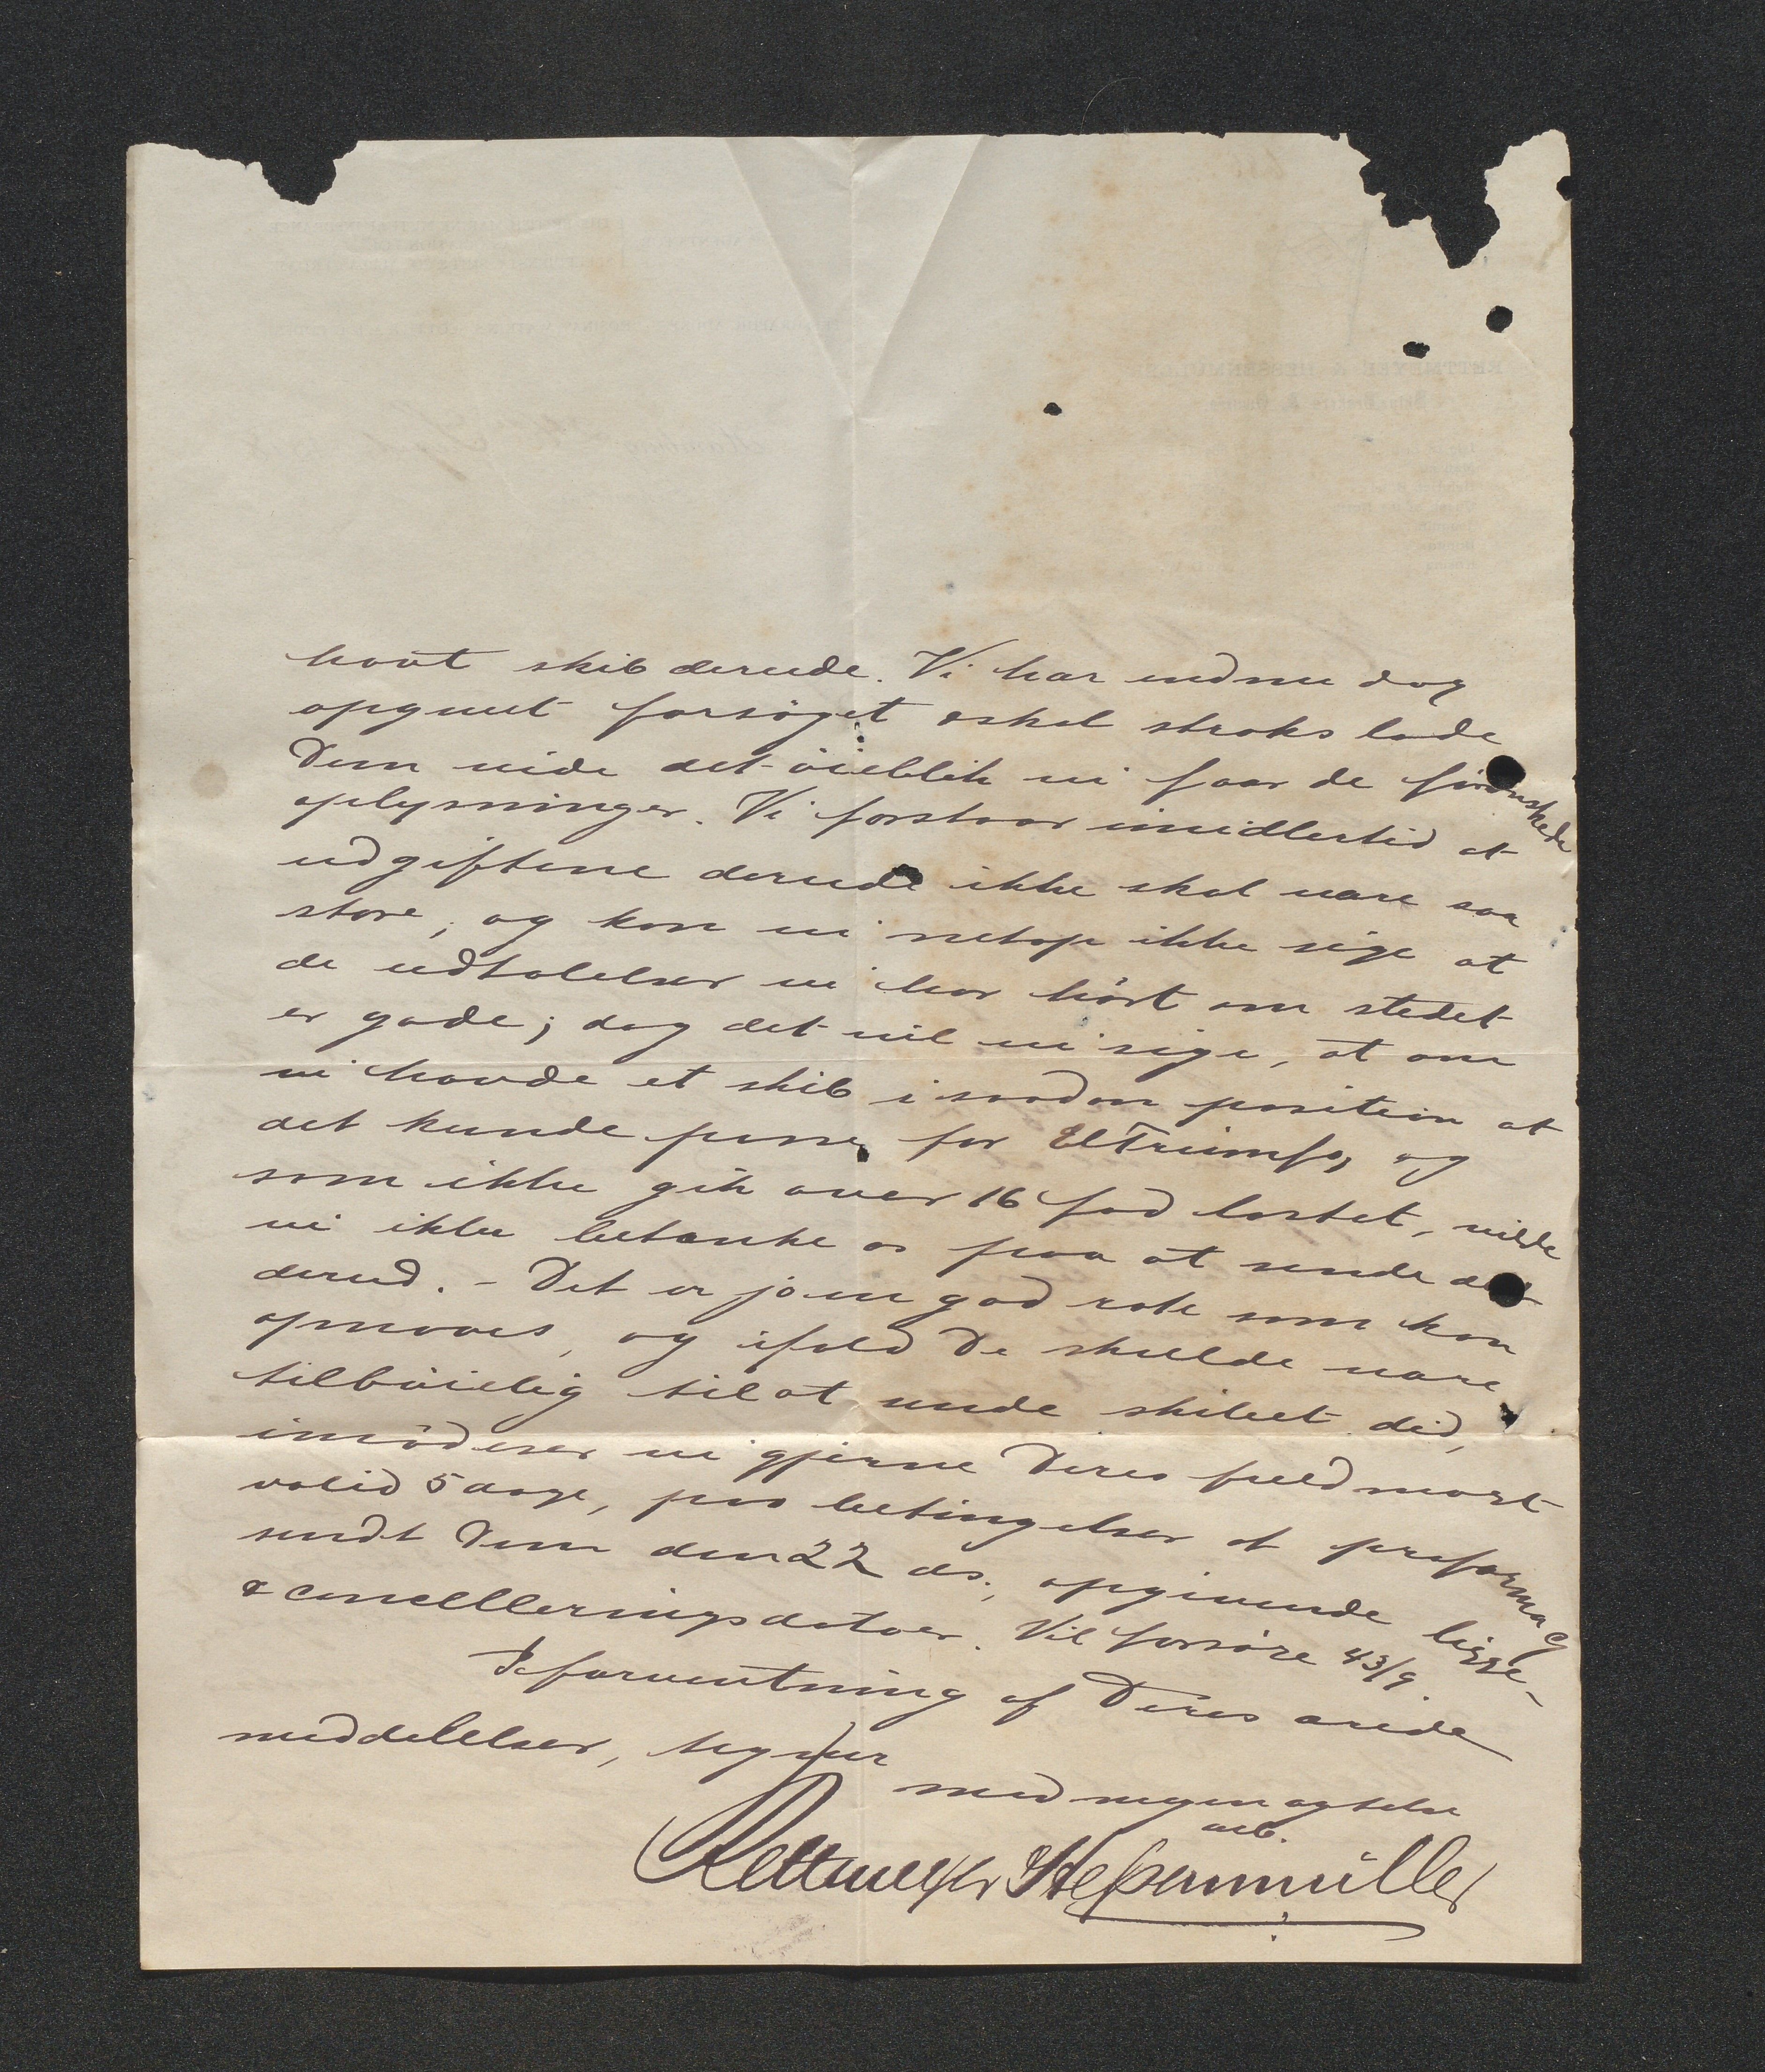 havt skib derude. Vi har endnu dog
opgivet forsöget & skal straks lade
Dem vide det öieblik vi faar de förönskede
oplysninger. Vi forstaar imidlertid at
udgiftene derude ikke skal være saa
store, og kan vi netop ikke sige at
de udtalelser vi har hört om stedet
er gode; dog det vil vi sige, at om
vi havde et skib i saadan position at
det kunde passe for El Triumfo, og
som ikke gik over 16 fod lastet, vilde
vi ikke betænke os paa at sende det
derud. - Det er jo en god rate som kan
opnaaes, og ifald De skulde være
tilböielig til at sende skibet did,
imödeser vi gjerne Deres fuldmagt
valid 5 dage, paa betingelser af proforma C/
sendt Dem den 22 ds., opgivende ligge-
& cancelleringsdatoer. Vil forsöge 43/9.
I forventning af Deres ærede
meddelelser, tegner
med megen agtelse
arb.
Rettmeyer & Hessenmüller